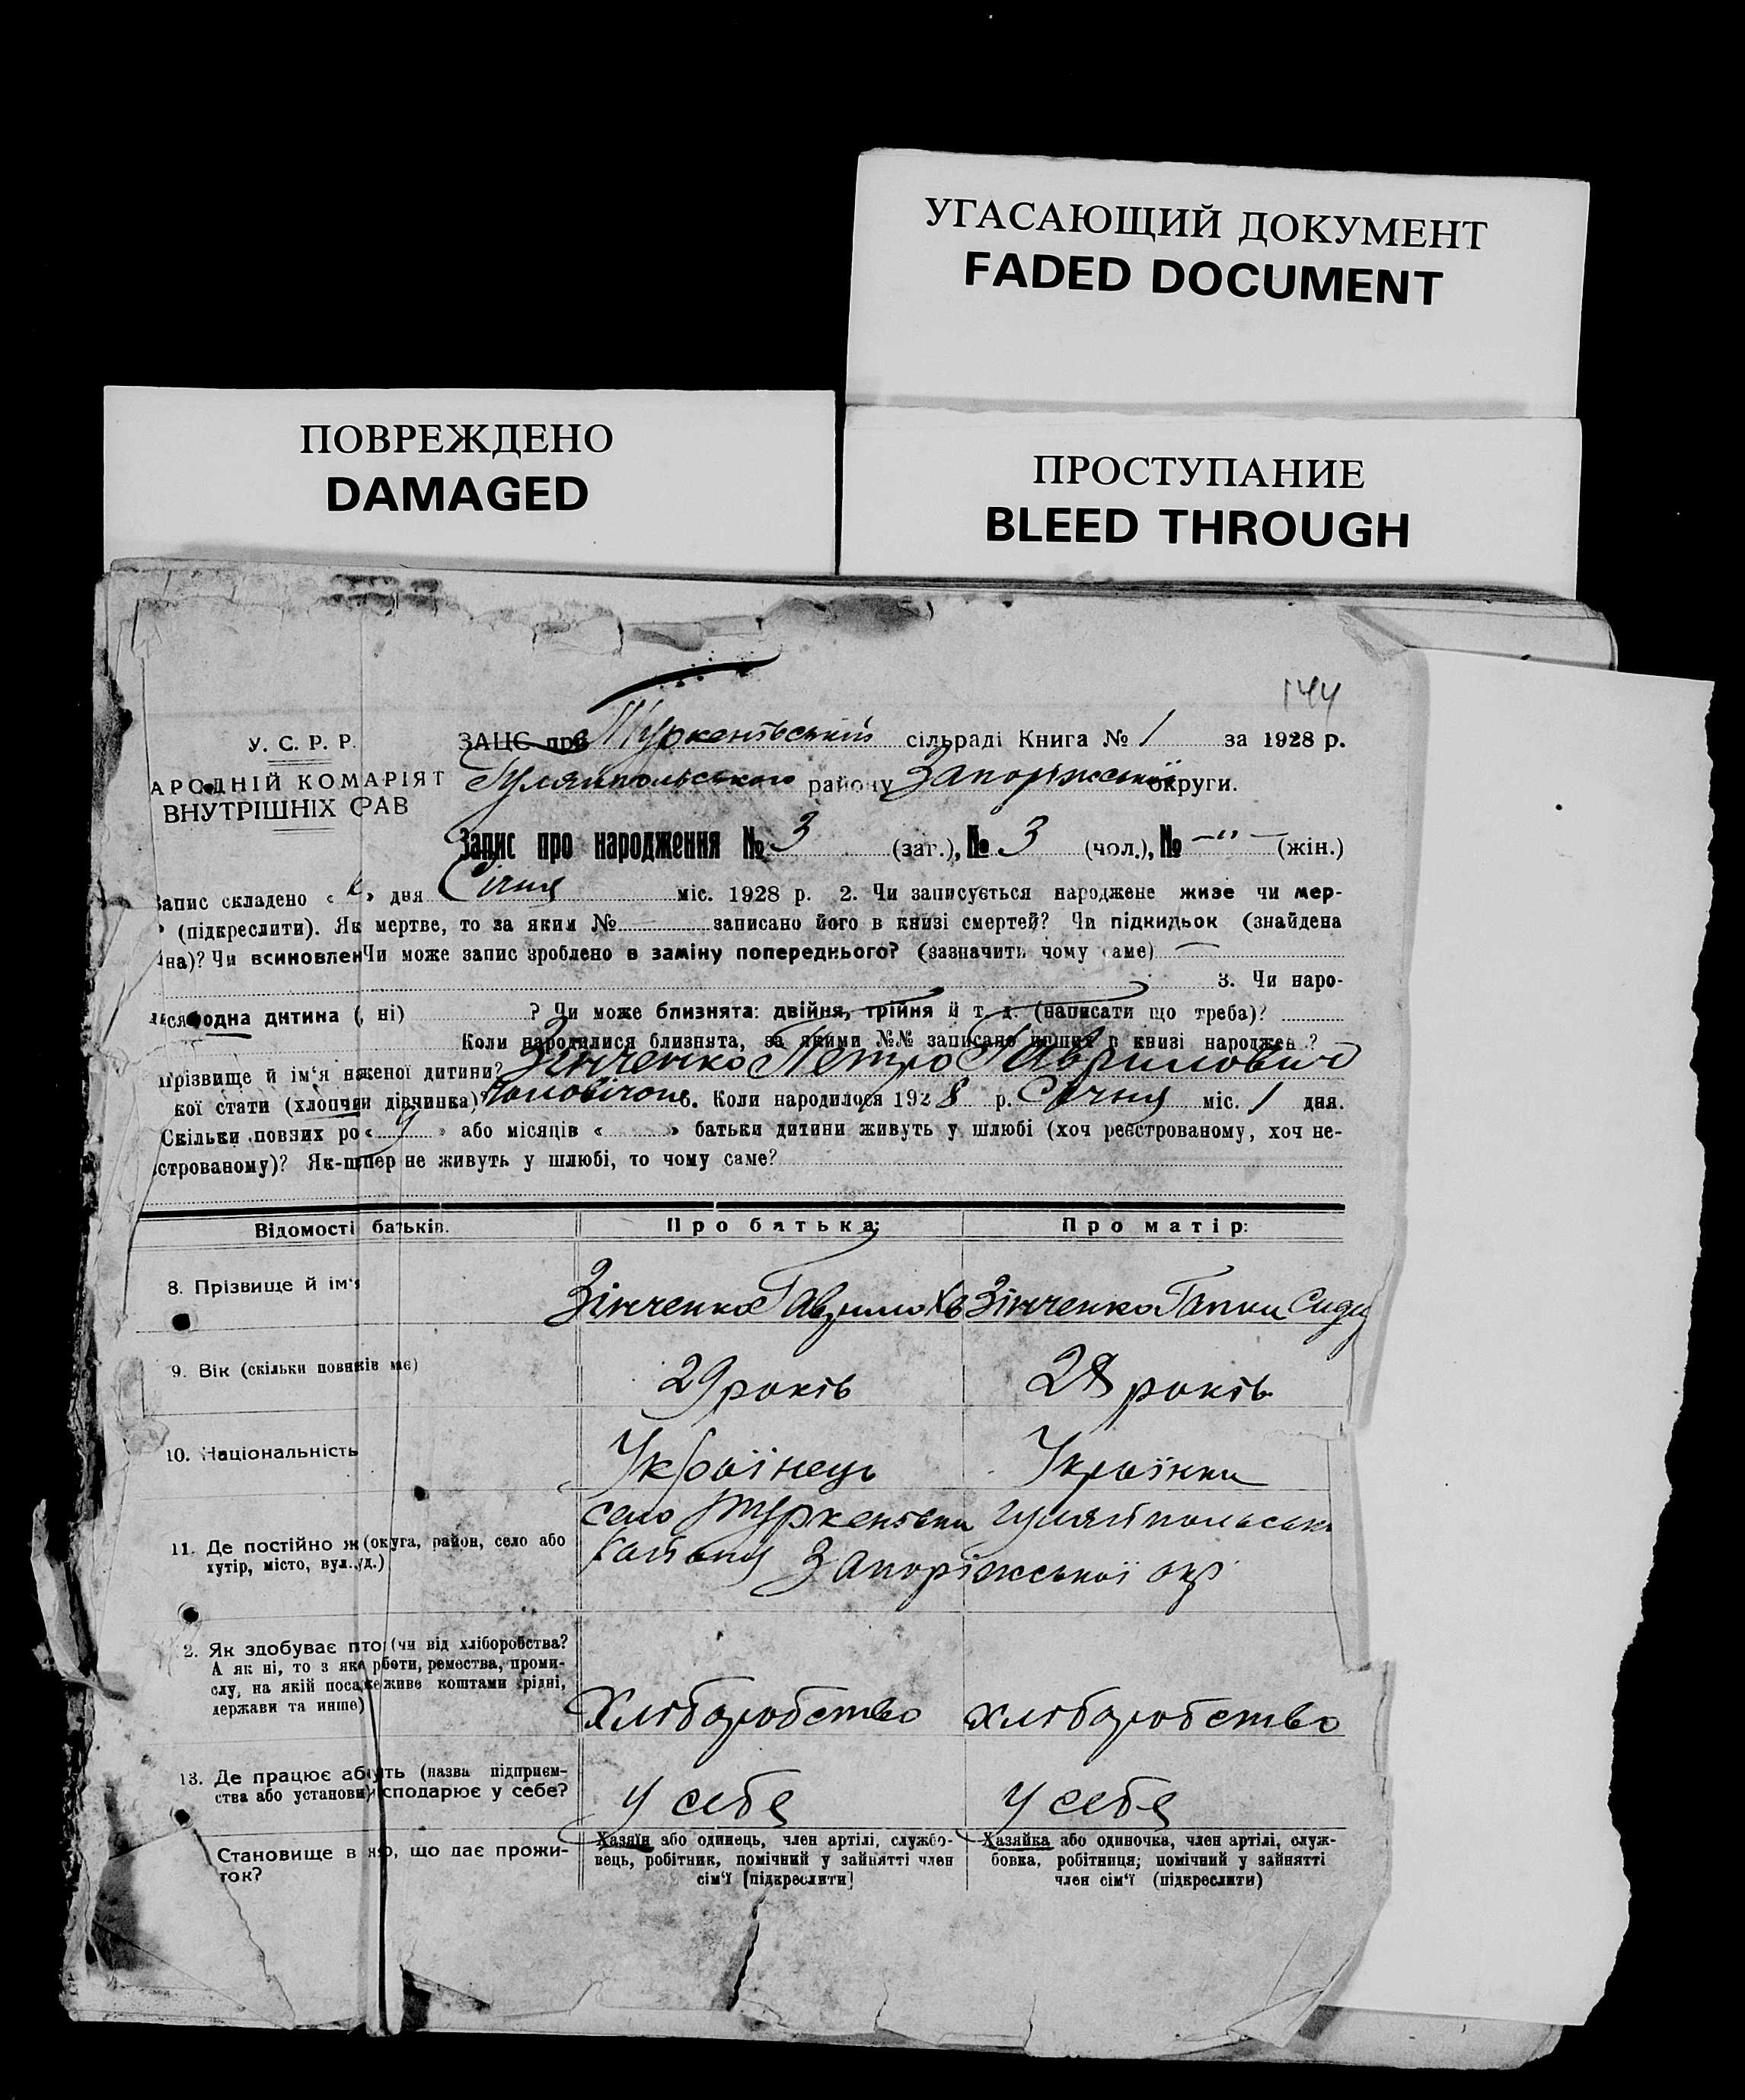 УГАСАЮЩИЙ ДОКУМЕНТ
FADED DOCUMENT
ПОВРЕЖДЕНО
DAMAGED
ПРОСТУПАНИЕ
BLEED THROUGH
144
У. С. Р. Р.
АРОДНІЙ КОМАРІЯТ
ВНУТРІШНІХ СРАВ
ЗАЦС при Туркенівській сільраді Книга № 1 за 1928 р.
Гуляйпольського району Запоріжської округи.
Запис про народження № 3 (заг.), № 3 (чол.), № —"— (жін.)
Запис складено « » дня Січня міс. 1928 р. 2. Чи записується народжене живе чи мер-
(підкреслити). Як мертве, то за яким № записано його в книзі смертей? Чи підкидьок (знайдена
на)? Чи всиновлен Чи може запис зроблено в заміну попереднього? (зазначить чому саме) —
3. Чи наро-
лася одна дитина ( ні) ? Чи може близнята: двійня, трійня й т. д. (написати що треба)?
Коли народилися близнята, за якими №№ записано инших в книзі народжен.?
Прізвище й ім'я на женої дитини? Зінченко Петро Гаврилович
кої стати (хлопчи дівчинка)? 6. Коли народилося 1928 р. Січня міс. 1 дня.
Скільки повних ро « 9 » або місяців « » батьки дитини живуть у шлюбі (хоч реєстрованому, хоч не-
строваному)? Як-що пер не живуть у шлюбі, то чому саме?
Відомості батьків. Про батька: Про матір:
8. Прізвище й ім'я Зінченко Гаврило Зінченко Гапки
9. Вік (скільки повн ків має) 29 років 28 років
10. Національність Українець Українки
село Туркенівки Гуляйпольськ
11. Де постійно ж (округа, район, село або району Запоріжської окр
хутір, місто, вул. уд.)
2. Як здобуває пто (чи від хліборобства?
А як ні, то з яко рботи, ремества, проми-
слу, на якій поса живе коштами рідні,
держави та инше) Хліборобство хліборобство
13. Де працює аб уть (назва підприєм-
ства або установи) сподарює у себе? У себе У себе
Становище в ню, що дає прожи-
ток?
Хазяїн або одинець, член артілі, службо-
вець, робітник, помічний у зайнятті член
сім'ї [підкреслити]
Хазяйка або одиночка, член артілі, служ-
бовка, робітниця; помічний у зайнятті
член сім'ї (підкреслити)